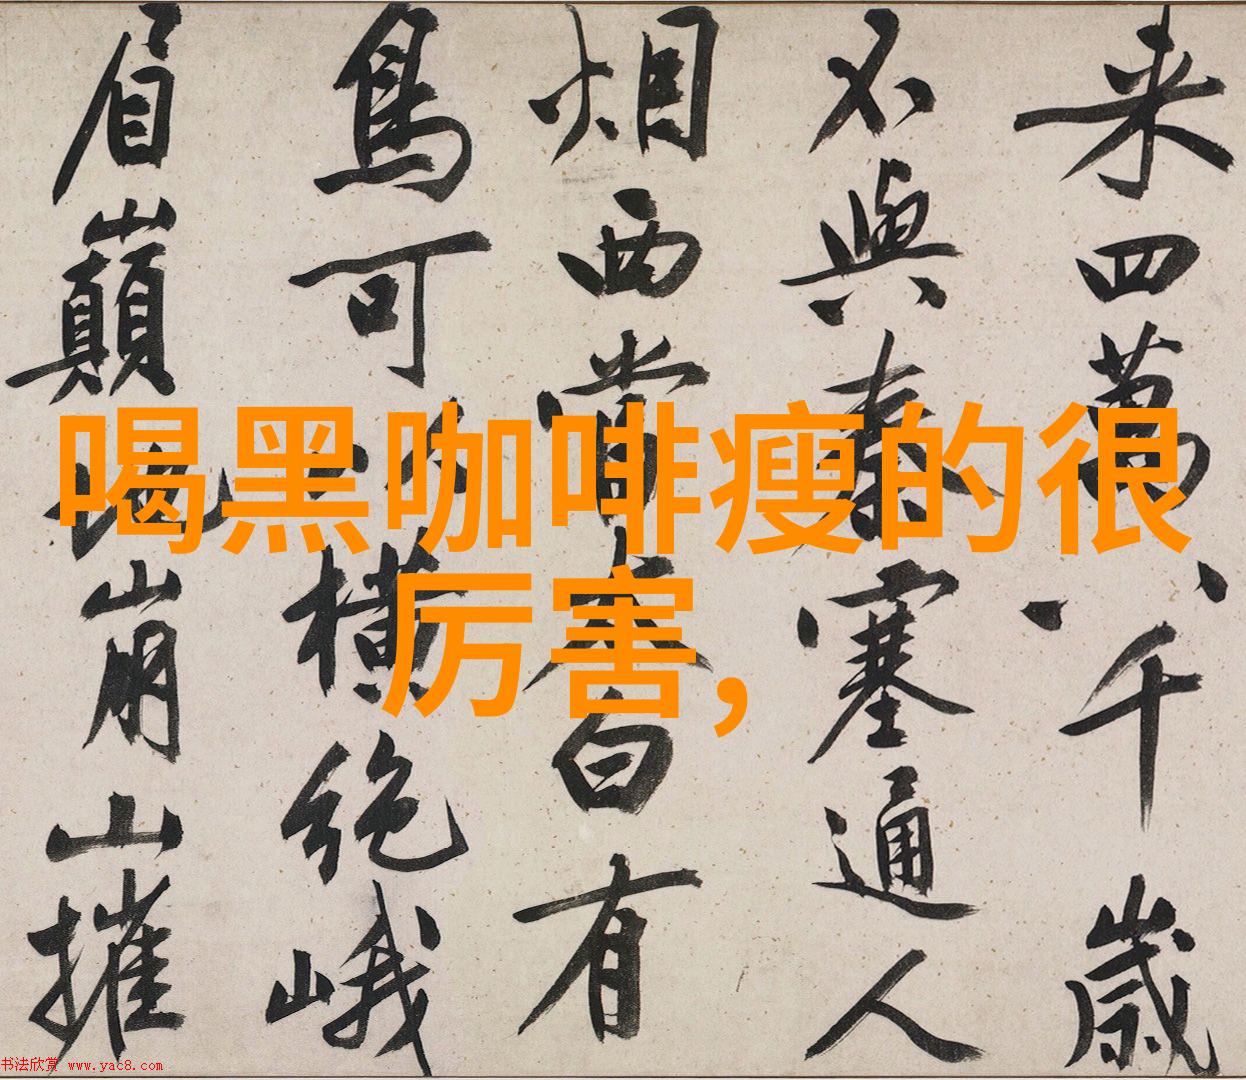 喝黑咖啡瘦的很
厉害,
来四萬八千歲
不與秦塞通人
烟西當太白有
鳥可以橫絕峨
眉巔地崩山摧
书法欣赏 www.yac8.com